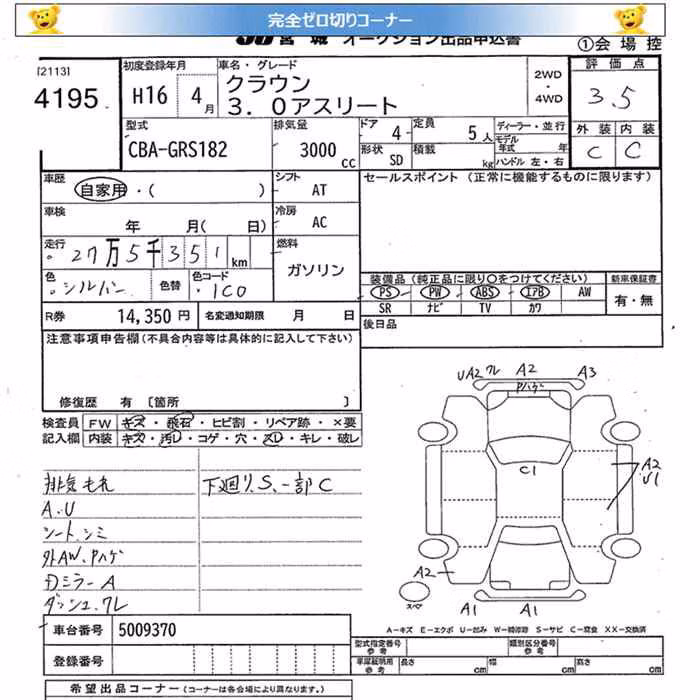 完全ゼロ切りコーナー
JU宮城 オークション出品申込書
①会場控
[2113]
4195
初度登録年月
H16 4月
車名・グレード
クラウン
3.0アスリート
2WD
・
4WD
評価点
3.5
外装 内装
C C
型式
CBA-GRS182
排気量
3000cc
ドア 4
定員 5人
形状 SD
積載 kg
ディーラー・並行
モデル年式 年
ハンドル 左・右
車歴
自家用・( )
シフト AT
セールスポイント(正常に機能するものに限ります)
車検 年 月( 日)
冷房 AC
走行
27万5千351km
燃料
ガソリン
色
シルバー
色替
色コード
1C0
装備品(純正品に限り○をつけてください)
新車保証書
PS PW ABS エアB AW
有・無
SR ナビ TV カワ
R券 14,350円
名変通知期限 月 日
後日品
注意事項申告欄(不具合内容等は具体的に記入して下さい)
修復歴 有 〔箇所 〕
検査員
記入欄
FW キズ・飛石・ヒビ割・リペア跡・×要
内装 キズ・汚レ・コゲ・穴・スレ・キレ・破レ
排気もれ
下廻り、S、一部C
A.U
シート、シミ
外AW、Pハゲ
Dミラー A
ダッシュ、ワレ
UA2 ワレ A2 A3
Pハゲ
C1
A2
U1
A2
A1 A1
スペア
A-キズ E-エクボ U-凹み W-補修跡 S-サビ C-腐食 XX-交換済
車台番号 5009370
登録番号
型式指定番号
参考
類別区分番号
参考
車庫証明用
参考
長さ cm
幅 cm
高さ cm
希望出品コーナー(コーナーは各会場により異なります)